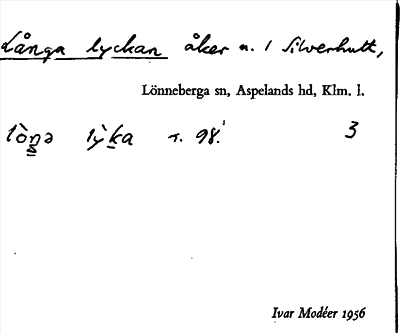 Långa lyckan åker n. 1 Silverhult,
Lönneberga sn, Aspelands hd, Klm. l.
lòŋə lỳka r. 98. 3
Ivar Modéer 1956